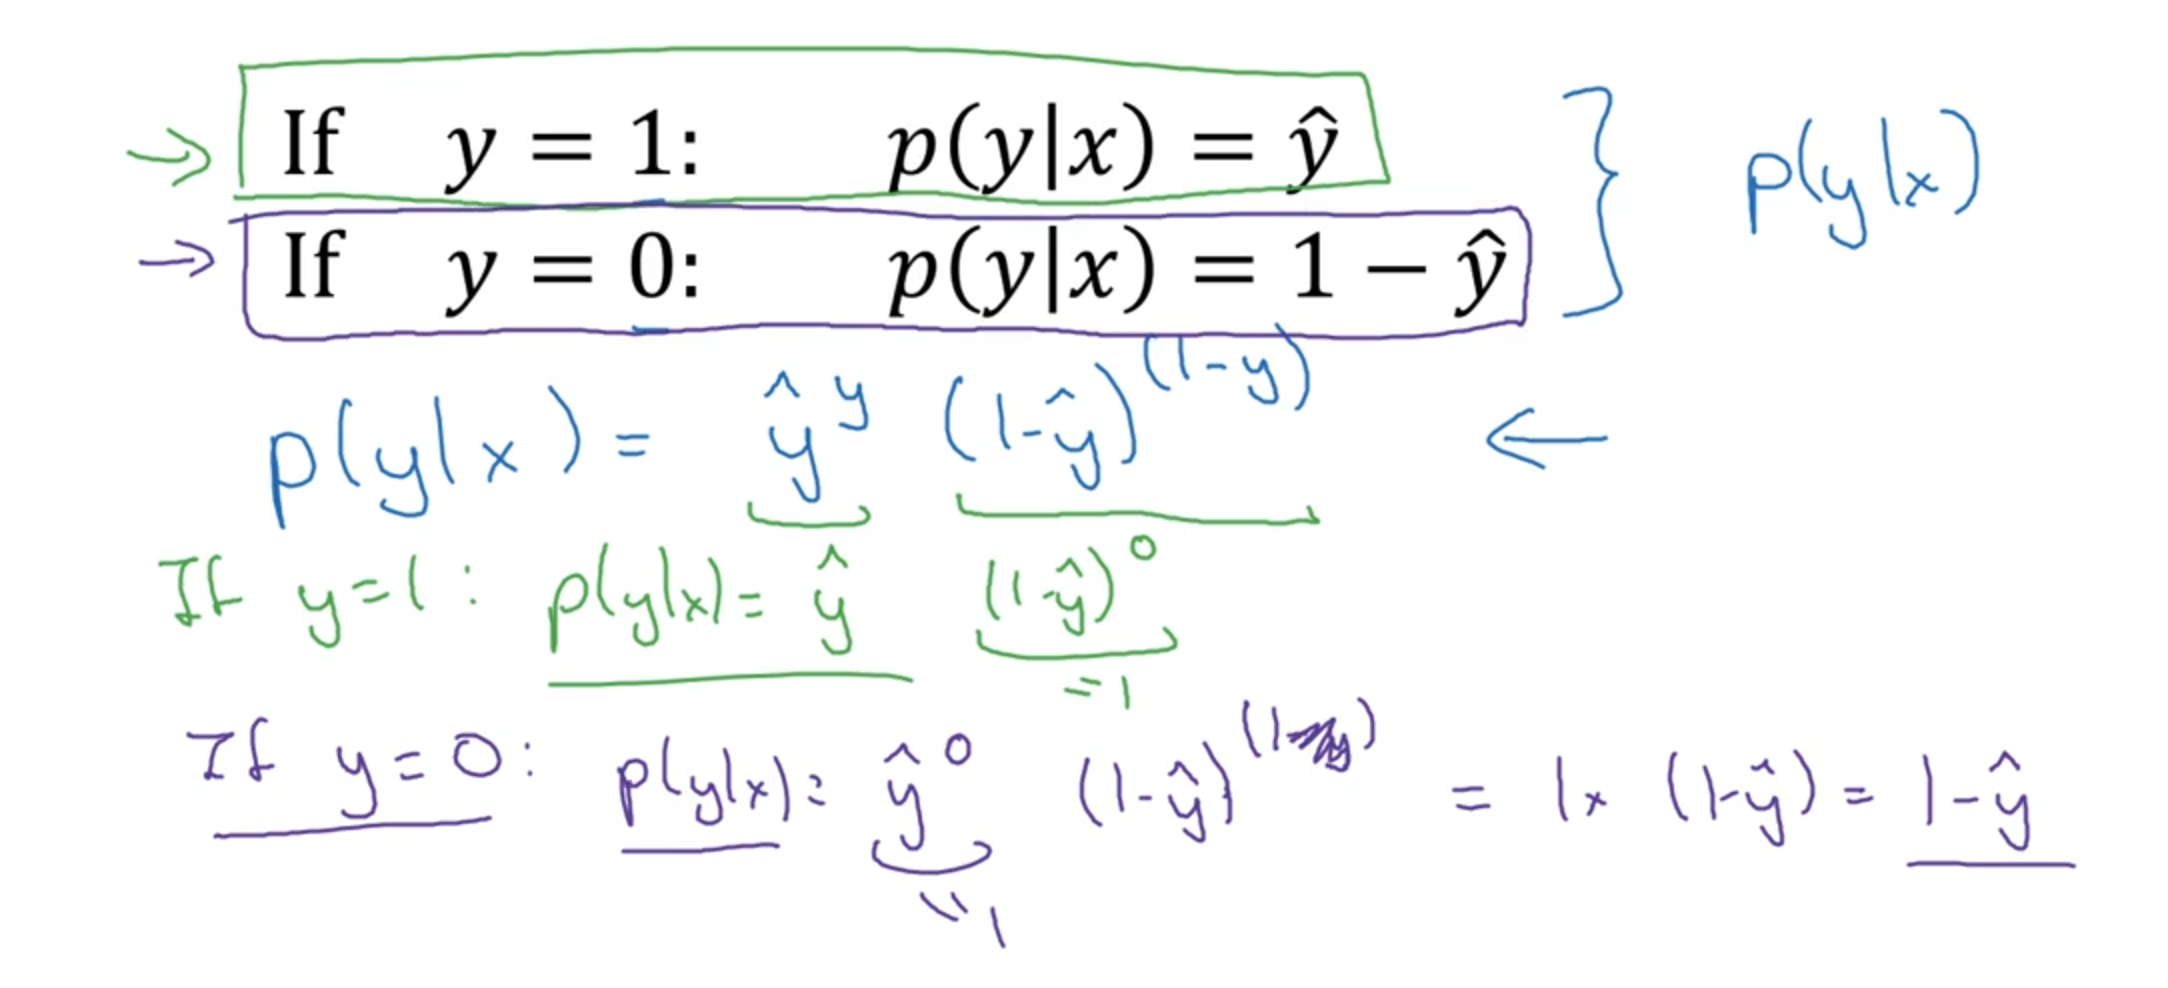 If y = 1: p(y|x) = ŷ
If y = 0: p(y|x) = 1 − ŷ
} p(y|x)
p(y|x) = ŷ^y (1-ŷ)^(1-y) ←
If y=1: p(y|x) = ŷ (1-ŷ)^0
=1
If y=0: p(y|x) = ŷ^0 (1-ŷ)^(1-y) = 1 × (1-ŷ) = 1-ŷ
=1